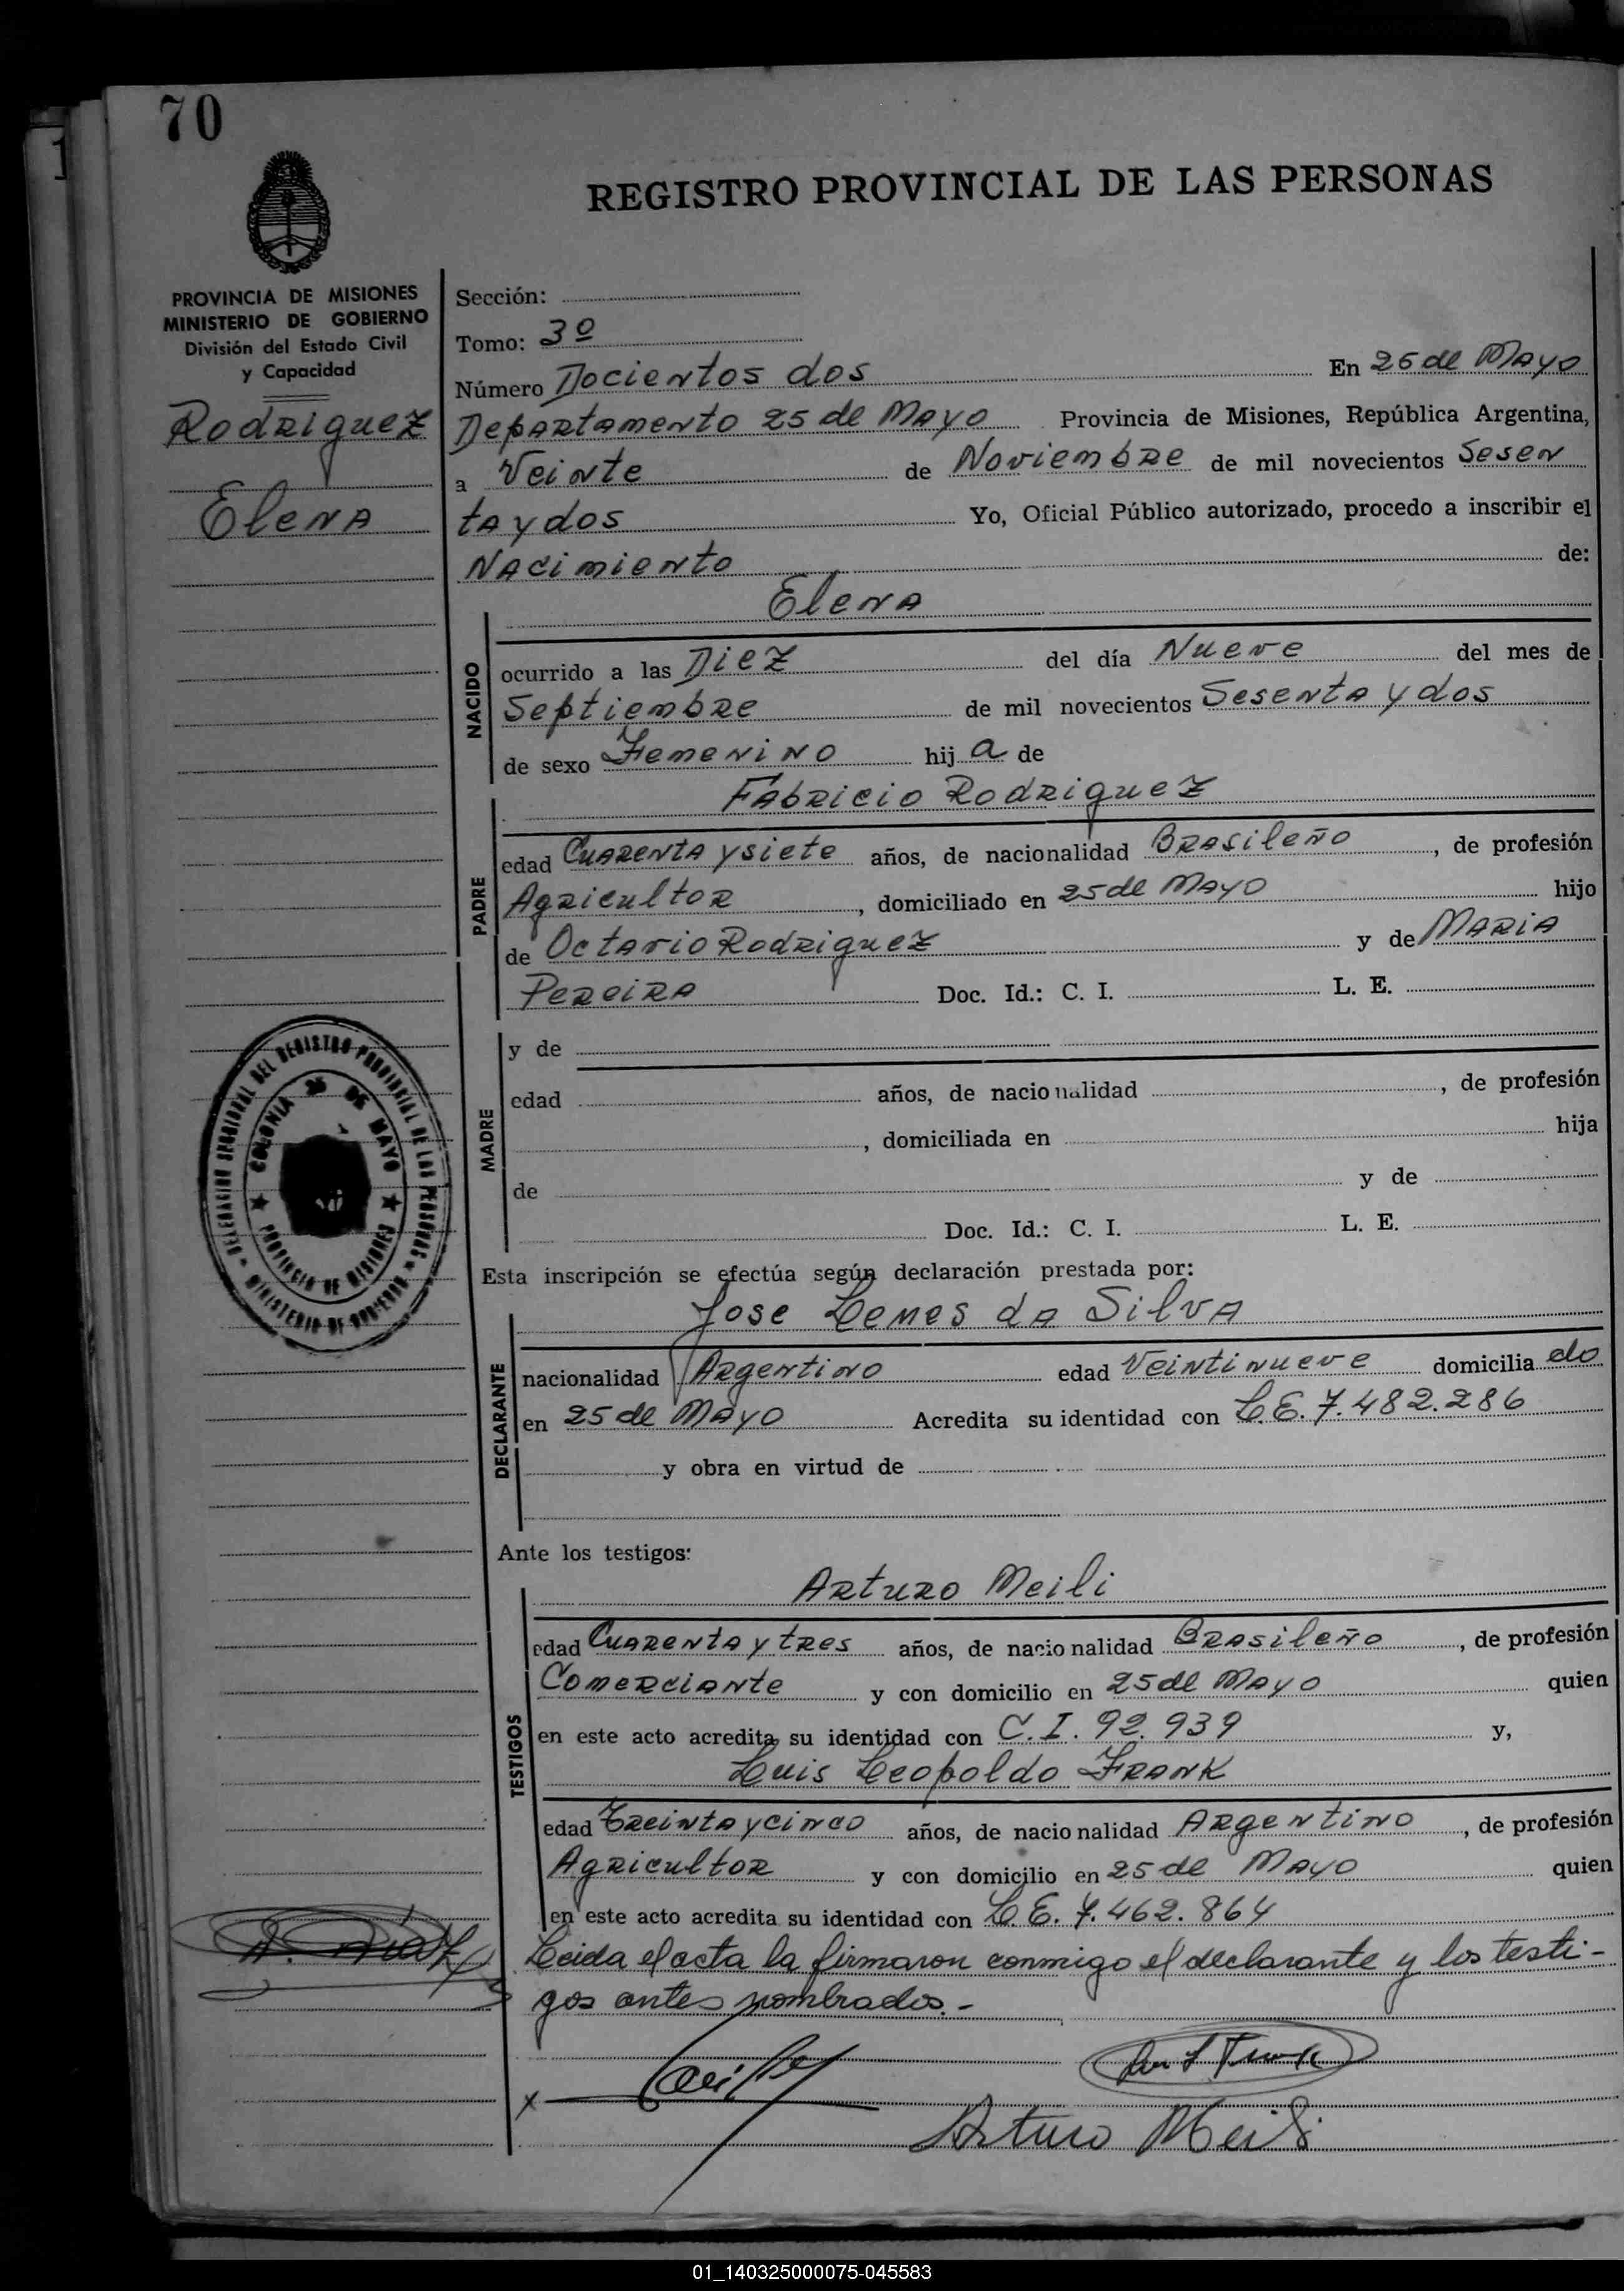 70
REGISTRO PROVINCIAL DE LAS PERSONAS
PROVINCIA DE MISIONES
MINISTERIO DE GOBIERNO
División del Estado Civil
y Capacidad
Rodriguez
Elena
Sección:
Tomo: 3º
Número Docientos dos En 25 de Mayo
Departamento 25 de Mayo Provincia de Misiones, República Argentina,
a Veinte de Noviembre de mil novecientos Sesen
ta y dos Yo, Oficial Público autorizado, procedo a inscribir el
Nacimiento de:
Elena
NACIDO
ocurrido a las Diez del día Nueve del mes de
Septiembre de mil novecientos Sesenta y dos
de sexo Femenino hij a de
Fabricio Rodriguez
PADRE
edad Cuarenta y siete años, de nacionalidad Brasileño, de profesión
Agricultor, domiciliado en 25 de Mayo hijo
de Octavio Rodriguez y de Maria
Pereira Doc. Id.: C. I. L. E.
MADRE
y de
edad años, de nacionalidad , de profesión
, domiciliada en hija
de y de
Doc. Id.: C. I. L. E.
DELEGACION SECCIONAL DEL REGISTRO PROVINCIAL DE LAS PERSONAS
COLONIA 25 DE MAYO
PROVINCIA DE MISIONES
MINISTERIO DE GOBIERNO
Esta inscripción se efectúa según declaración prestada por:
Jose Lemes da Silva
DECLARANTE
nacionalidad Argentino edad Veintinueve domicilia do
en 25 de Mayo Acredita su identidad con L.E. 7.482.286
y obra en virtud de
Ante los testigos:
Arturo Meili
TESTIGOS
edad Cuarenta y tres años, de nacionalidad Brasileño, de profesión
Comerciante y con domicilio en 25 de Mayo quien
en este acto acredita su identidad con C.I. 92.939 y,
Luis Leopoldo Frank
edad Treinta y cinco años, de nacionalidad Argentino, de profesión
Agricultor y con domicilio en 25 de Mayo quien
en este acto acredita su identidad con L.E. 7.462.864
Leida el acta la firmaron conmigo el declarante y los testi-
gos antes nombrados.-
Arturo Meili
01_140325000075-045583